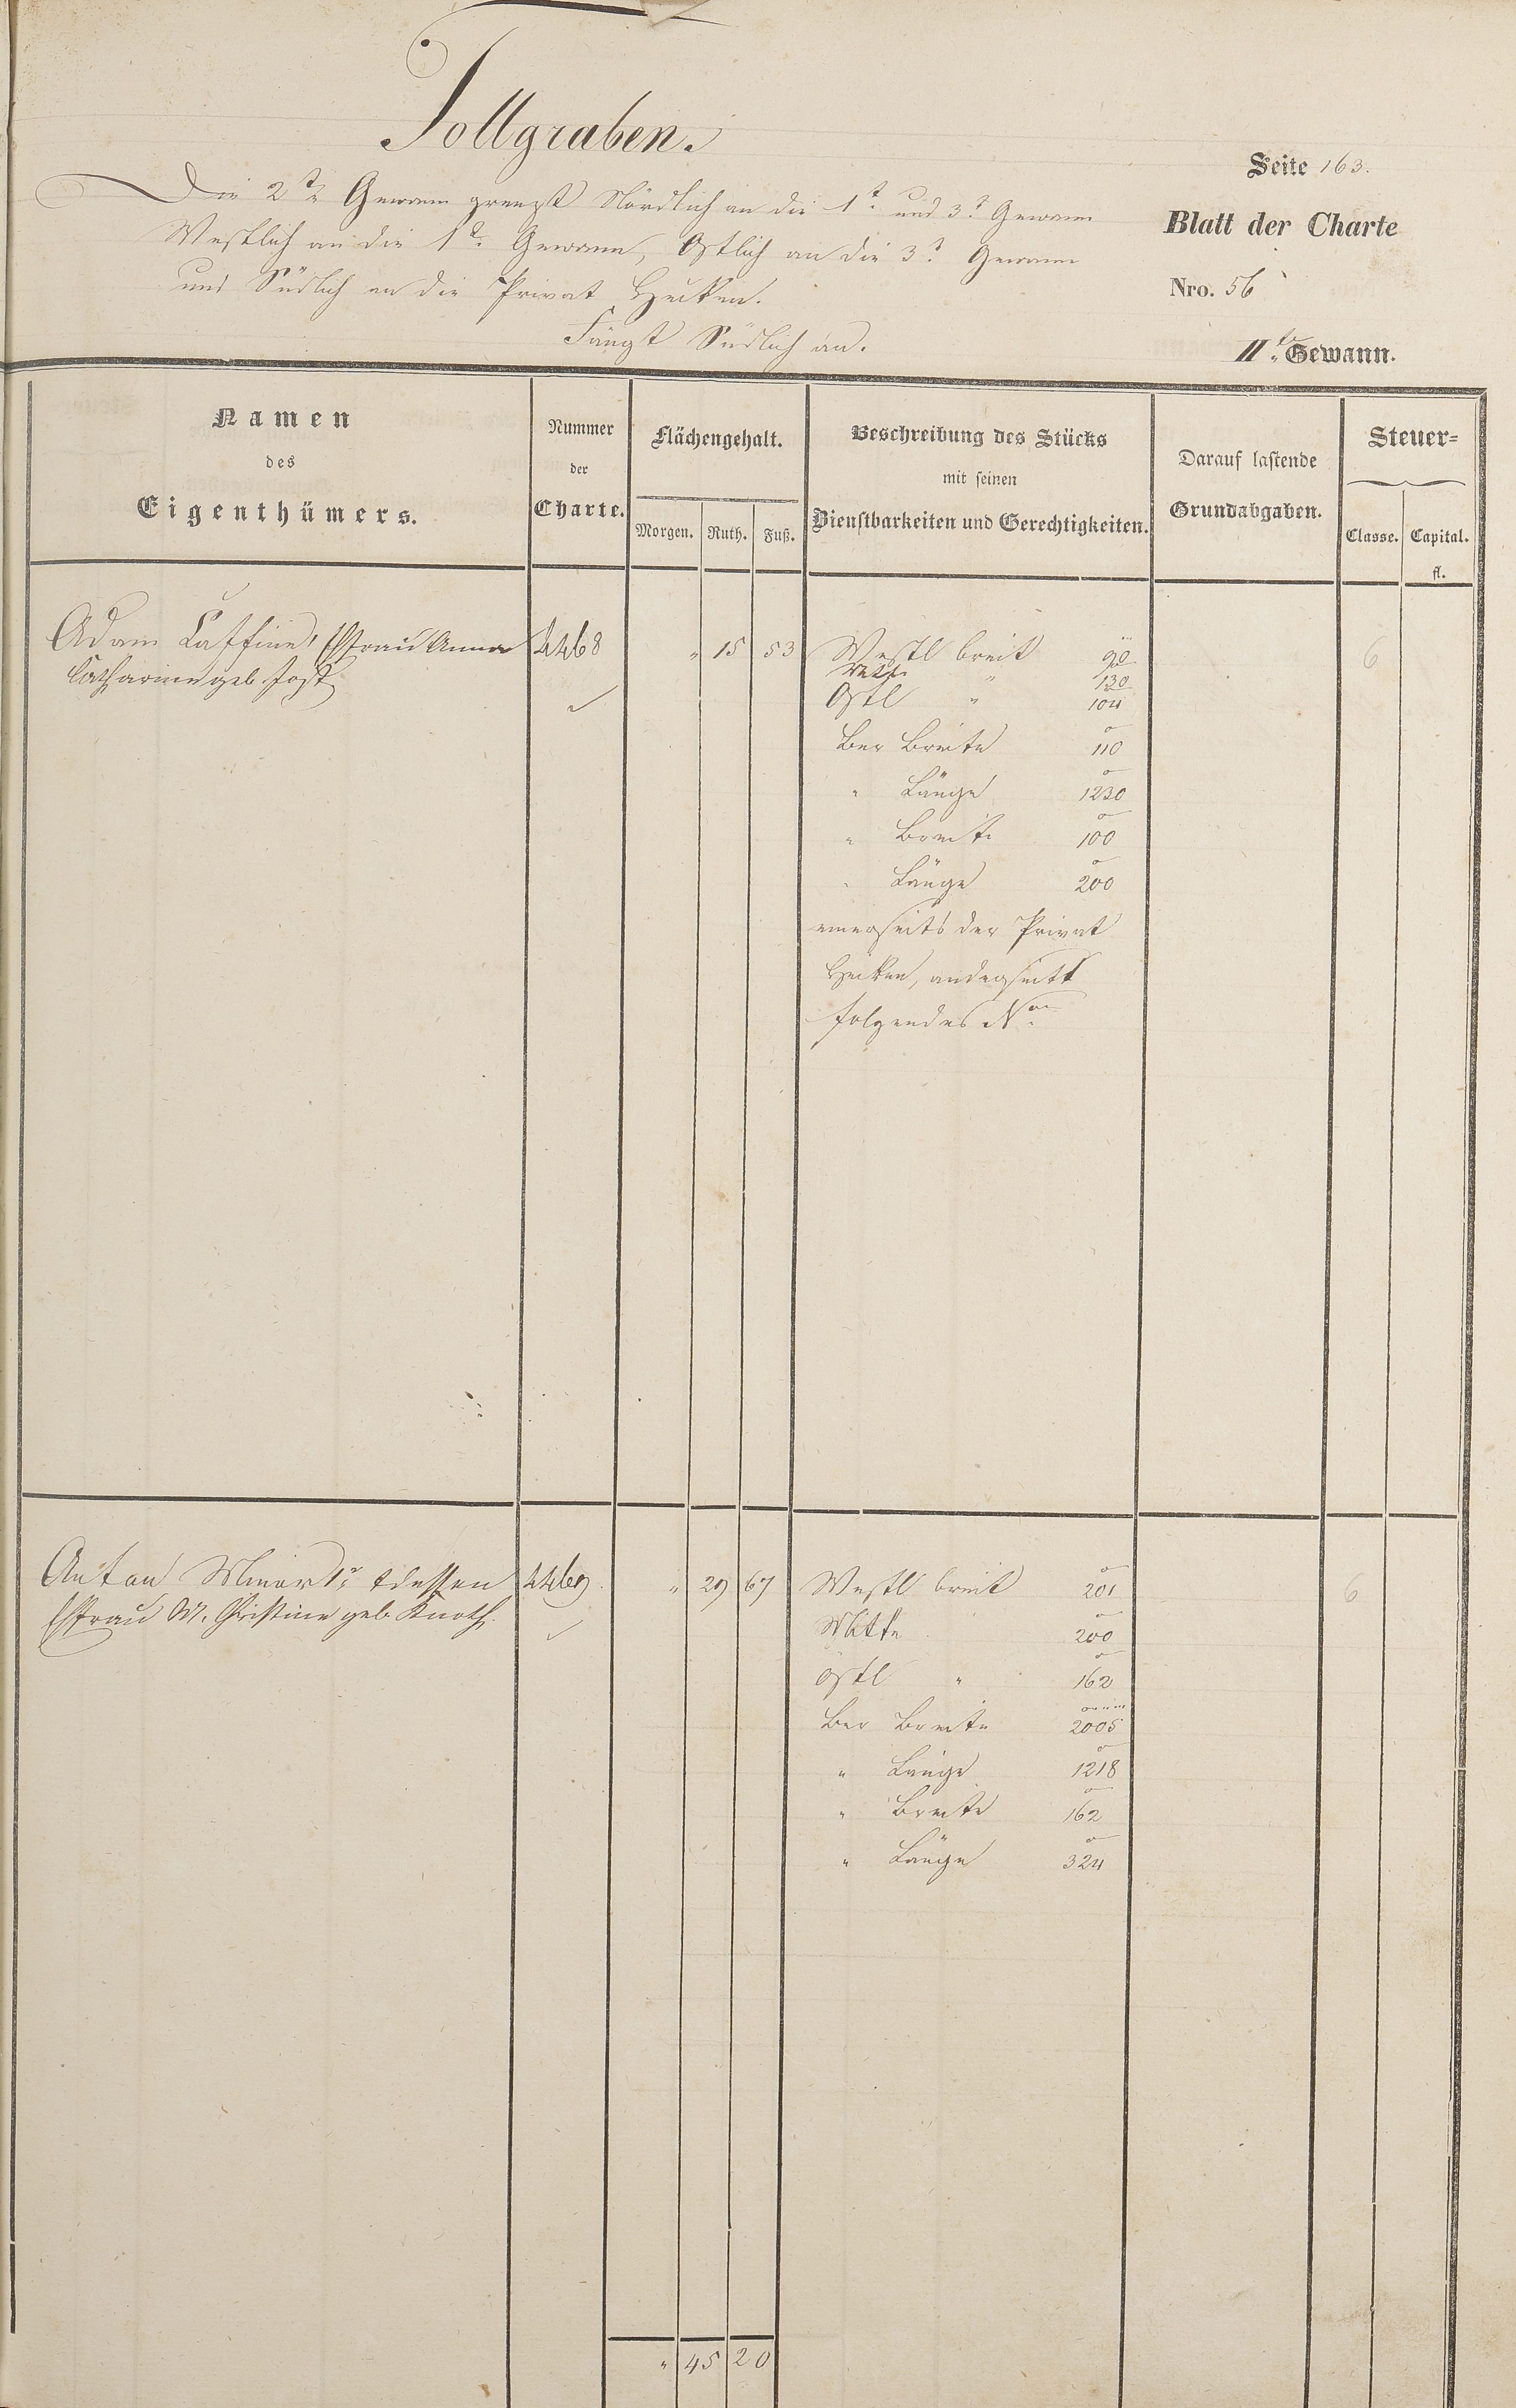 Tollgraben.
Seite 163.
Die 2te Gewann grenzt Nördlich an die 1te und 3te Gewann
Westlich an die 1te Gewann, Ostlich an die 3te Gewann
und Südlich an die Privat Hecken.
Fängt Südlich an.
Blatt der Charte
Nro. 56
IIte Gewann.
Namen
des
Eigenthümers.
Nummer
der
Charte.
Flächengehalt.
Morgen. Ruth. Fuß.
Beschreibung des Stücks
mit seinen
Dienstbarkeiten und Gerechtigkeiten.
Darauf lastende
Grundabgaben.
Steuer=
Classe. Capital.
fl.
Adam Laffine, Ehfrau Anna 4468 " 15 53 Westl breit 90 6
Catharine geb. Jost
Mitte " 130
Ostl " 104
Ber Breite 110
" Länge 1230
" Breite 100
" Länge 200
einerseits der Privat
Hecken, anderseits
folgendes Nro
Anton Minor 1r & dessen 4469 " 29 67 Westl breit 201 6
Ehfrau M. Christine geb Knoth.
Mitte 200
Ostl " 162
Ber Breite 2005
" Länge 1218
" Breite 162
" Länge 324
" 45 20